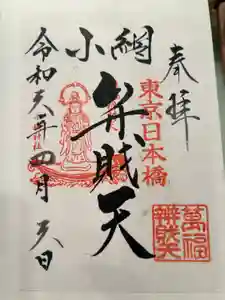 奉拝
東京日本橋
小網
弁財天
令和六年四月六日
萬福
辨財天